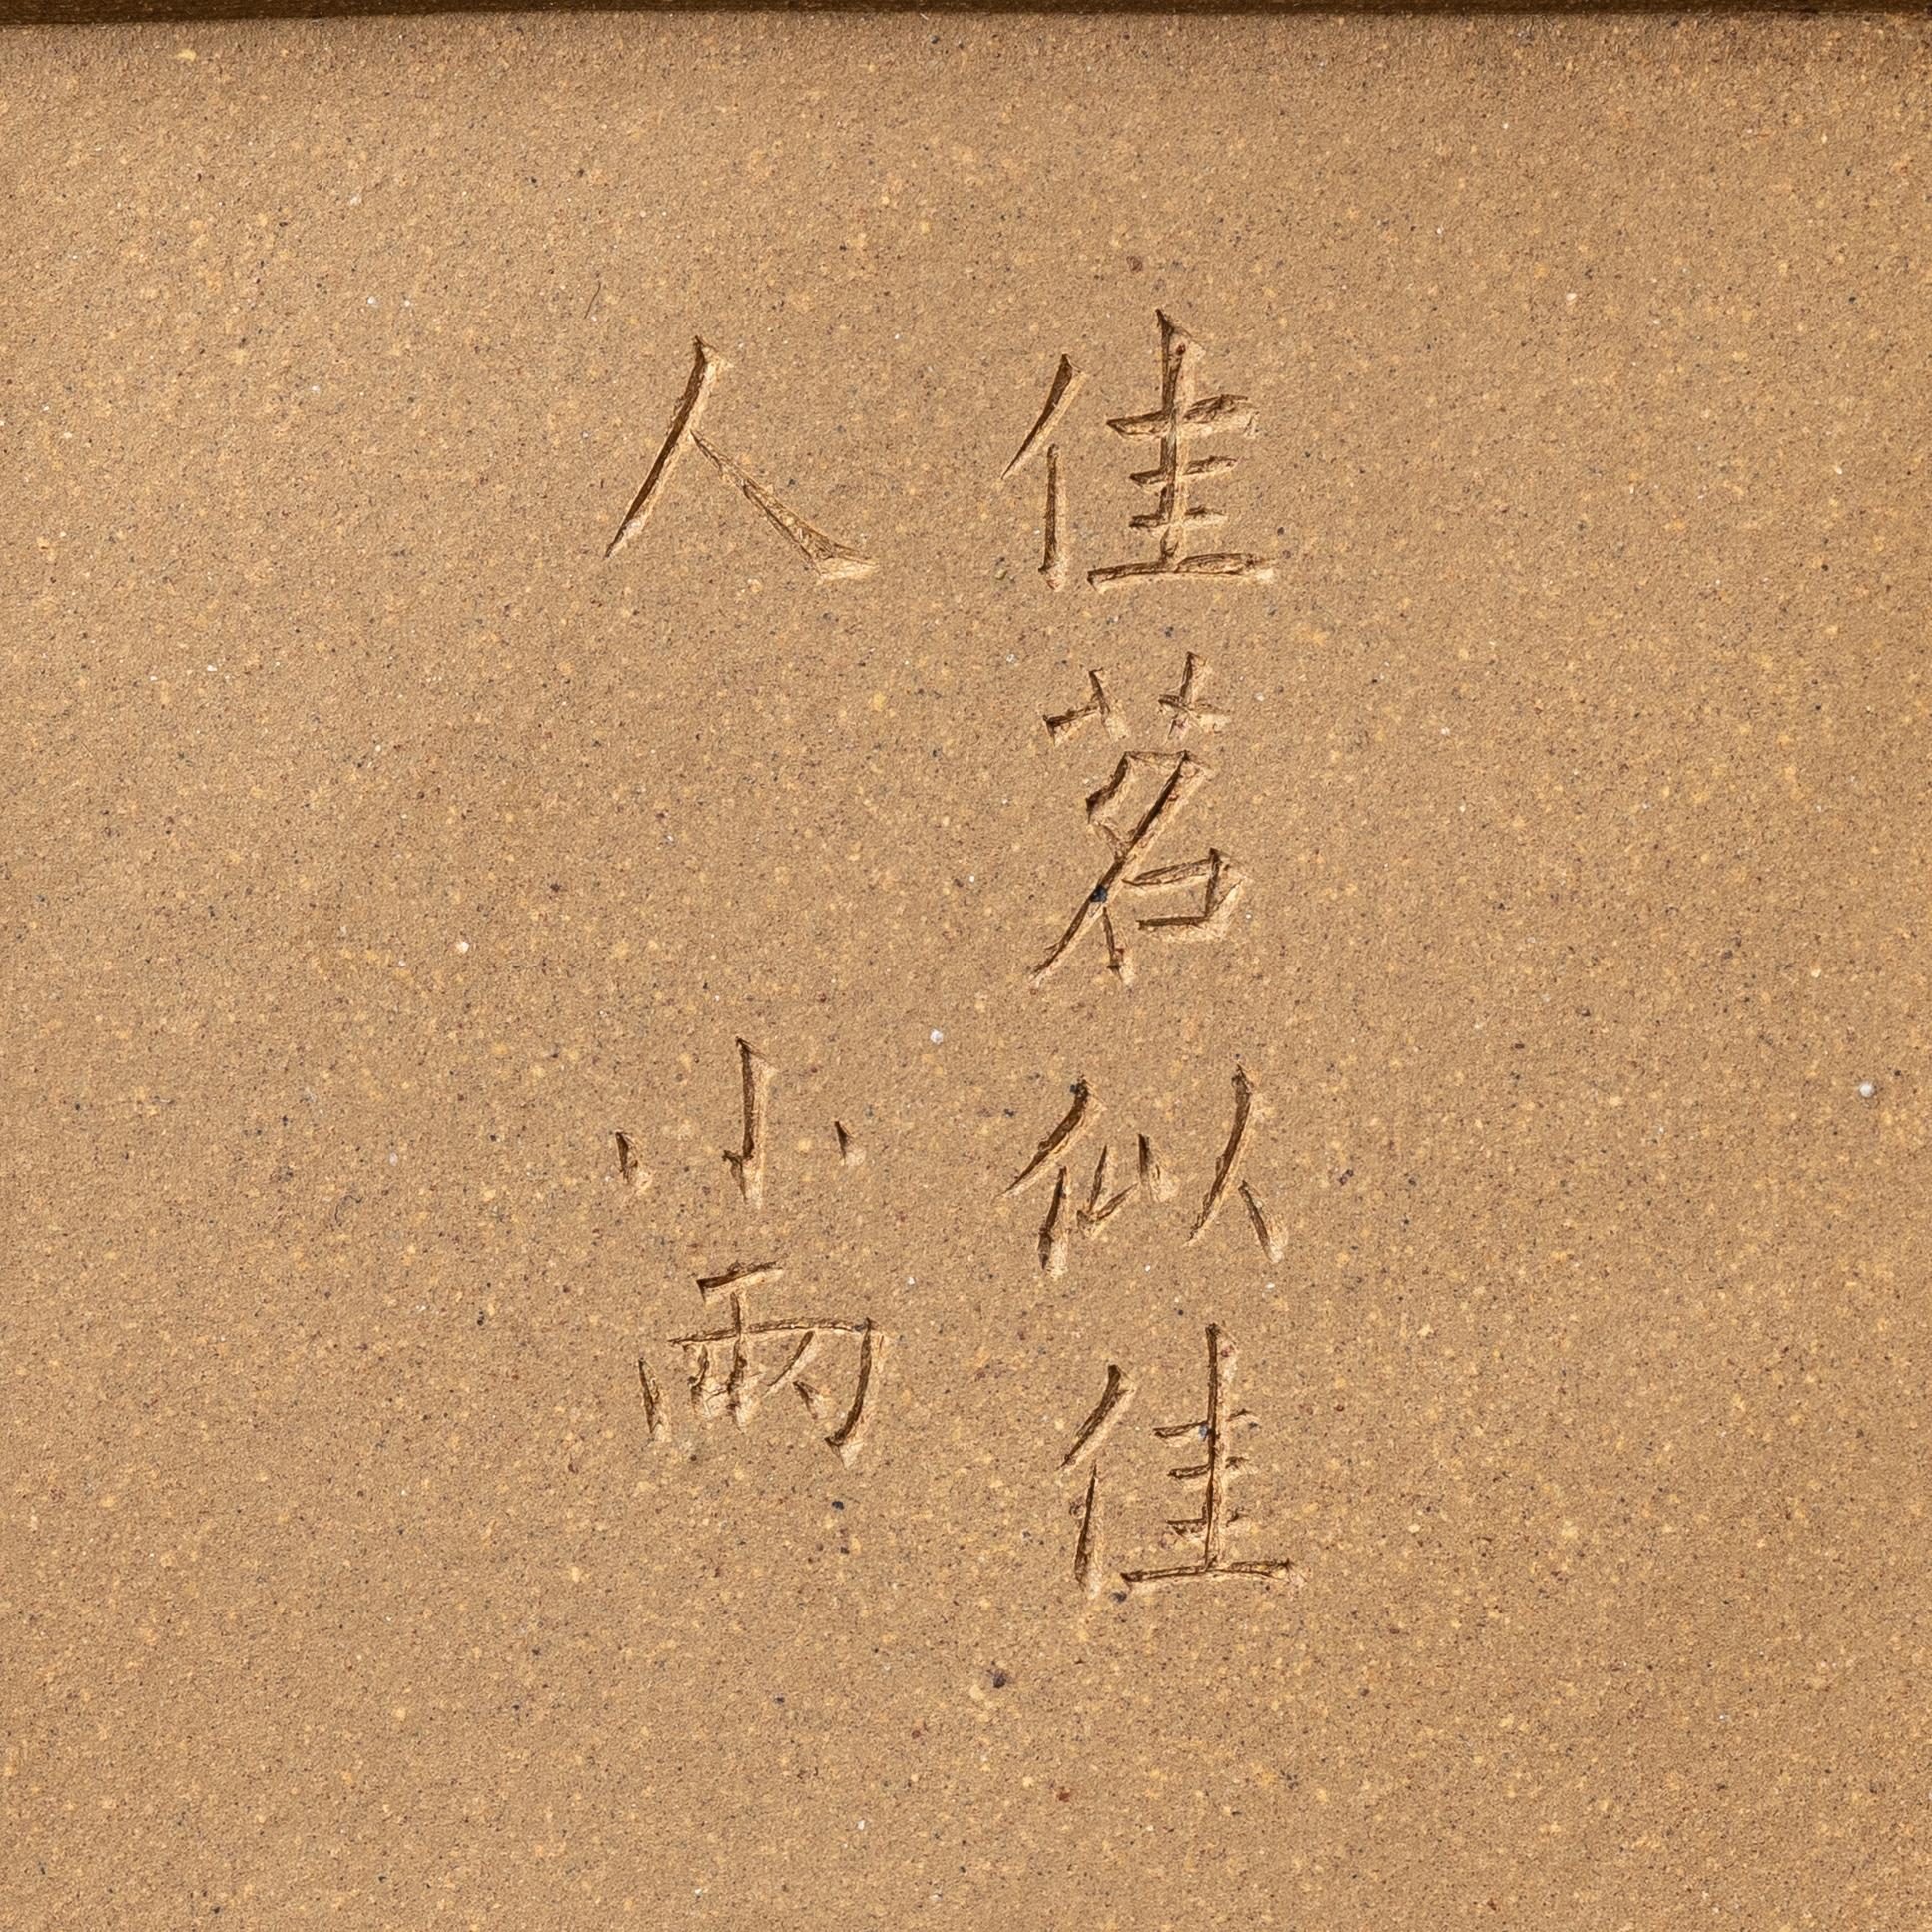 佳茗似佳
人
小雨